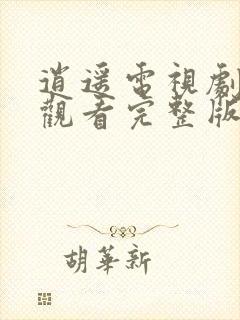 逍遥電視劇
觀看完整版
胡華新